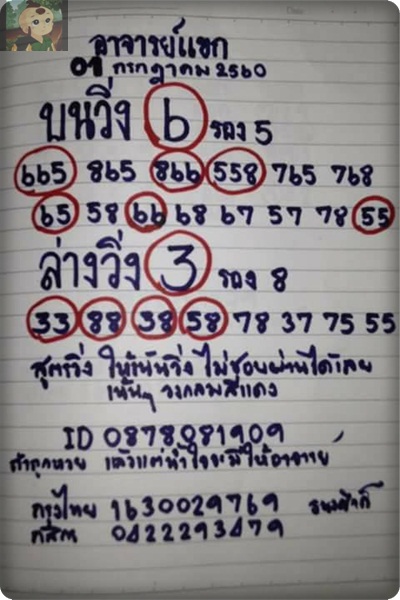 อาจารย์แขก
01 กรกฎาคม 2560
บนวิ่ง 6 รอง 5
665 865 866 558 765 768
65 58 66 68 67 57 78 55
ล่างวิ่ง 3 รอง 8
33 88 38 58 78 37 75 55
สูตรวิ่ง ให้เน้นวิ่ง ไม่ชอบผ่านได้เลย
เน้นๆ วงกลมสีแดง
ID 0878081909
ถ้าถูกหวย แล้วแต่น้ำใจจะมีให้อาจารย์
กรุงไทย 1630029769
กสิกร 0422293479